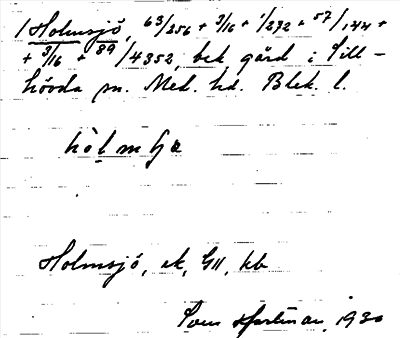 /Holmsjö, 63/256 + 3/16 + 1/272 + 57/144 +
+ 3/16 + 89/4352, bek gård i Till-
hövda sn. Med. hd. Blek. l.
hòlmʃa
Holmsjö, ek, GII, kb
Sven Hartman, 1930